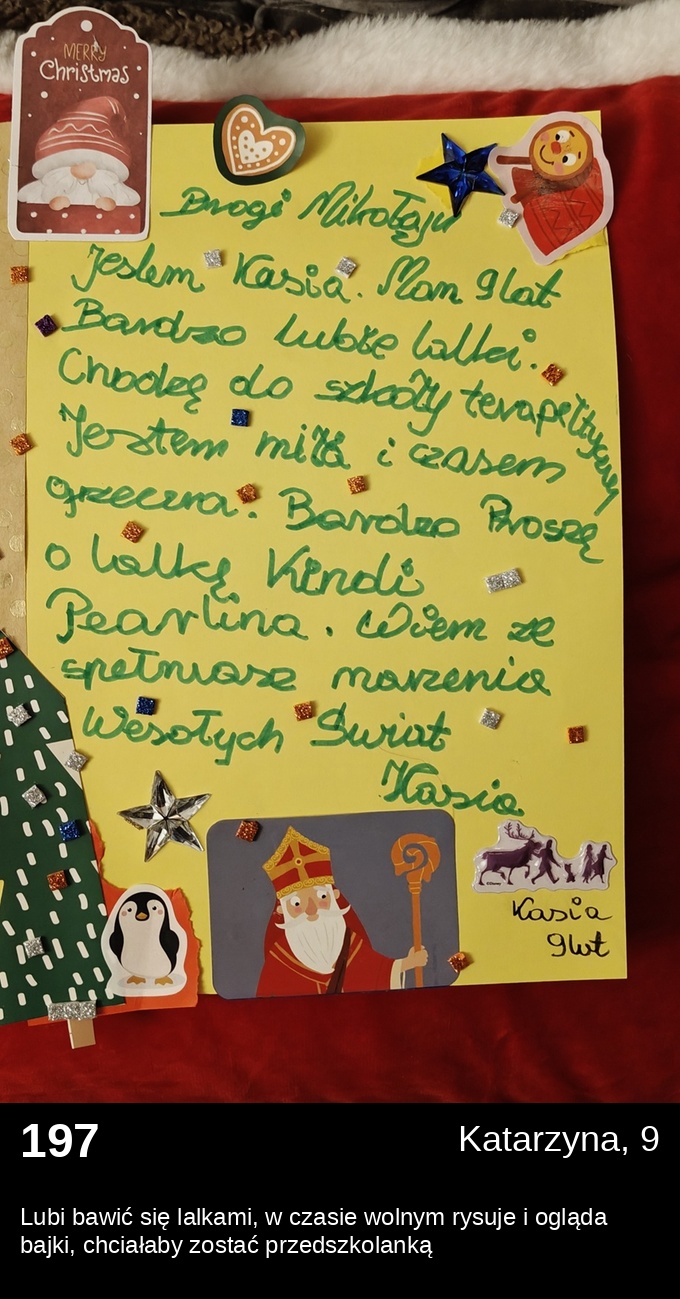 MERRY
Christmas
Drogi Mikołaju
Jestem Kasia. Mam 9 lat
Bardzo lubię lalki.
Chodzę do szkoły terapełtycznej
Jestem miła i czasem
grzeczna. Bardzo Proszę
o lalkę Kindi
Pearlina. Wiem ze
spełniasz marzenia
Wesołych Świat
Kasia
Kasia
9 lat
197
Katarzyna, 9
Lubi bawić się lalkami, w czasie wolnym rysuje i ogląda
bajki, chciałaby zostać przedszkolanką